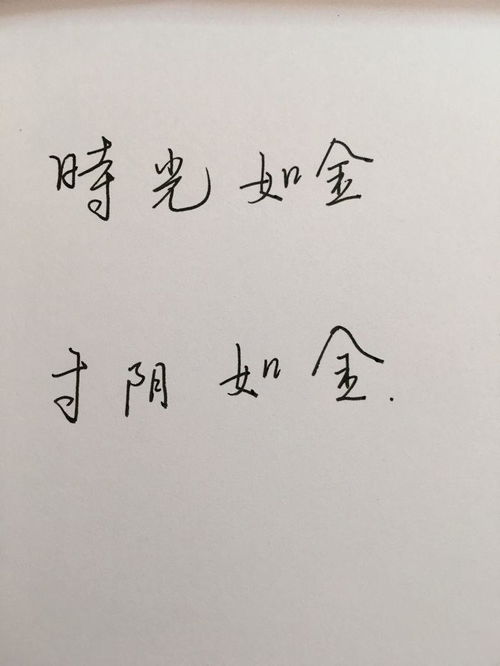 時光如金
寸阴如金.